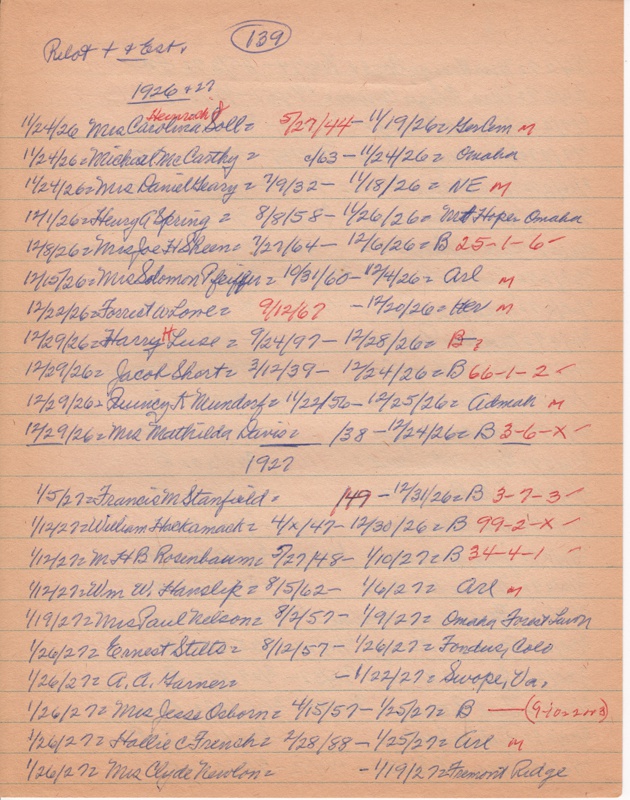 139
Pilot + + Est.
1926 + 27
Heinrich
11/24/26 Mrs Carolina Soll = 5/27/44 – 11/19/26 = Gerlem M
11/24/26 = Michael McCarthy = /63 – 11/24/26 = Omaha
11/24/26 = Mrs Daniel Geary = 7/9/32 – 11/18/26 = NE M
12/1/26 = Henry A Spring = 8/8/58 – 11/26/26 = Mt Hope Omaha
12/8/26 = Mrs Joe H Skeen = 7/27/64 – 12/6/26 = B 25-1-6 ✓
12/15/26 = Mrs Solomon Pfeiffer = 10/31/60 – 12/4/26 = Arl M
12/22/26 = Forrest W Lowe = 9/12/67 – 12/20/26 = Her M
12/29/26 = Harry K Luse = 9/24/97 – 12/28/26 = B ?
12/29/26 = Jacob Short = 3/12/39 – 12/24/26 = B 66-1-2 ✓
12/29/26 = Quincy K Mundorf = 11/22/56 – 12/25/26 = Admah M
12/29/26 = Mrs Mathilda Davis = /38 – 12/24/26 = B 3-6-X ✓
1927
1/5/27 = Francis M Stanfield = /49 – 12/31/26 = B 3-7-3 ✓
1/12/27 = William Hackamack = 4/x/47 – 12/30/26 = B 99-2-X ✓
1/12/27 = M H B Rosenbaum = 5/27/48 – 1/10/27 = B 34-4-1 ✓
1/12/27 = Wm W. Hanslip = 8/5/62 – 1/6/27 = Arl M
1/19/27 = Mrs Paul Nelson = 8/2/57 – 1/9/27 = Omaha Forest Lawn
1/26/27 = Ernest Stilts = 8/12/57 – 1/26/27 = Fondus, Colo
1/26/27 = A. A. Garner = – 1/22/27 = Swope, Va.
1/26/27 = Mrs Jesse Osborn = 4/15/57 – 1/25/27 = B — (9-10-2 or 3)
1/26/27 = Hollie C French = 2/28/88 – 1/25/27 = Arl M
1/26/27 = Mrs Clyde Newlon = – 1/19/27 = Fremont Ridge